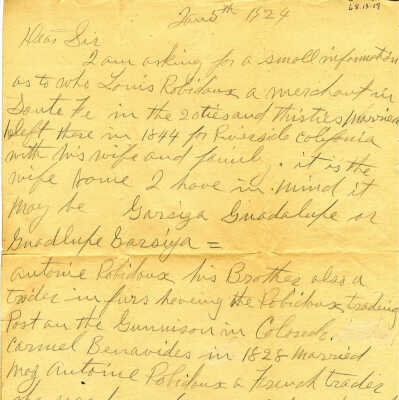 68.13.19
Jan 5th 1924
Dear Sir
I am asking for a small information
as to who Louis Robidoux a merchant in
Santa Fe in the 20ties and thisties Married
left there in 1844 for Riverside colifonia
with his wife and family. it is the
wife name I have in mind it
may be Garsiya Guadalupe or
Guadlupe Garsiya =
Antoine Robidoux his Brother also a
trader in furs haveing the Robidoux trading
Post on the Gunnison in Colorado.
Carmel Benavides in 1828 Married
Antoine Robidoux a French trader